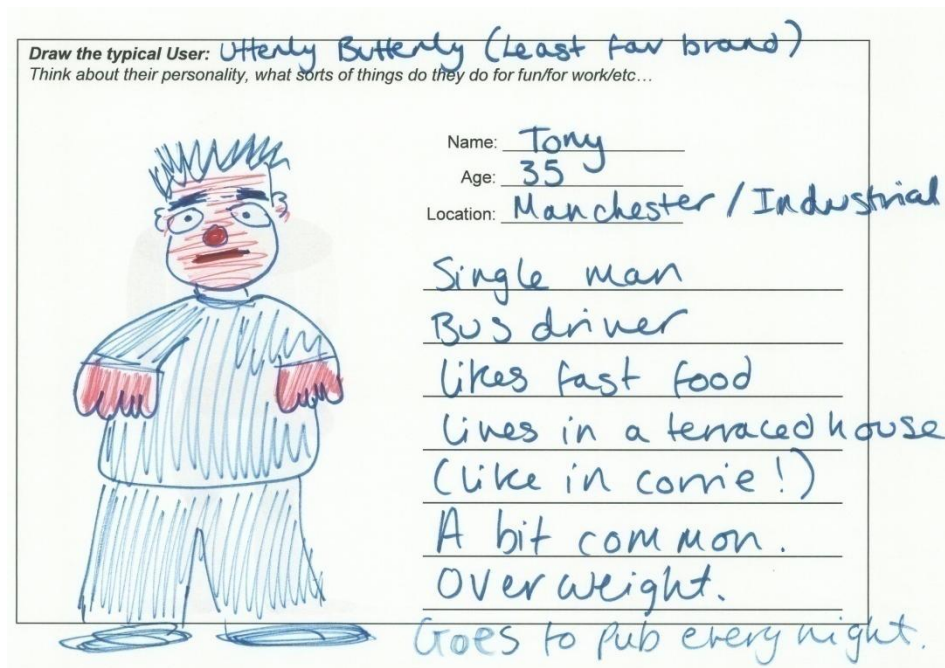 Draw the typical User: Utterly Butterly (Least fav brand)
Think about their personality, what sorts of things do they do for fun/for work/etc...
Name: Tony
Age: 35
Location: Manchester / Industrial
Single man
Bus driver
likes fast food
lives in a terraced house
(like in corrie!)
A bit common.
Overweight.
Goes to pub every night.